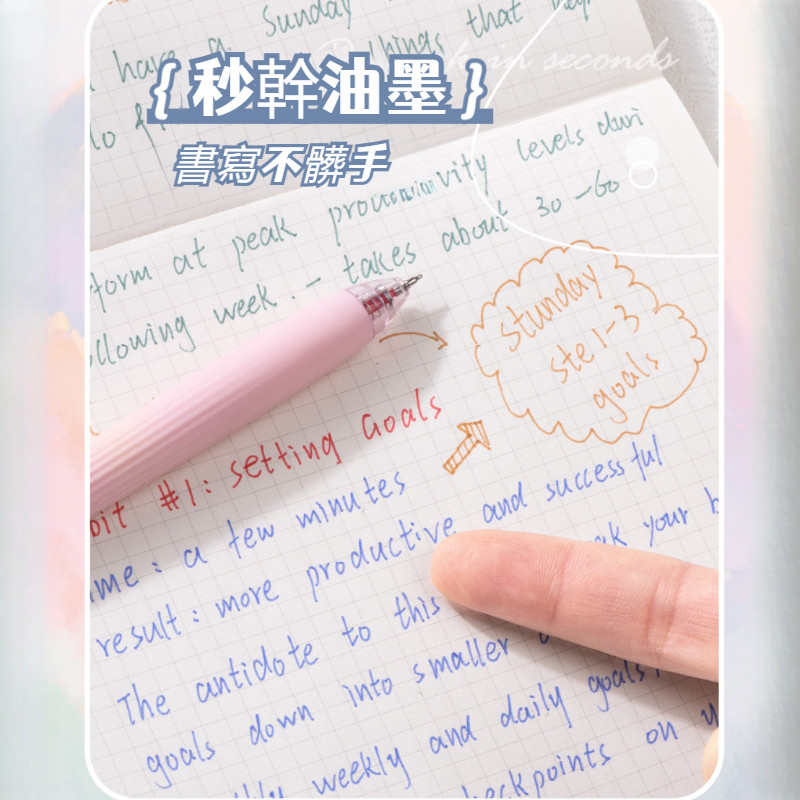 have a Sunday
things that help
in seconds
{秒幹油墨}
書寫不髒手
form at peak productivity levels duri
ollowing week. - takes about 30 -60
stunday
ste 1-3
goals
bit #1: setting Goals
ime: a few minutes
result: more productive and successful
The antidote to this your
goals down into smaller
weekly and daily goals,
eckpoints on